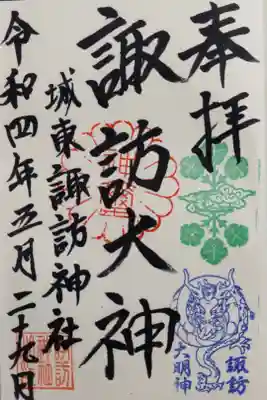 奉拝
諏訪大神
城東諏訪神社
令和四年五月二十九日
諏訪
大明神